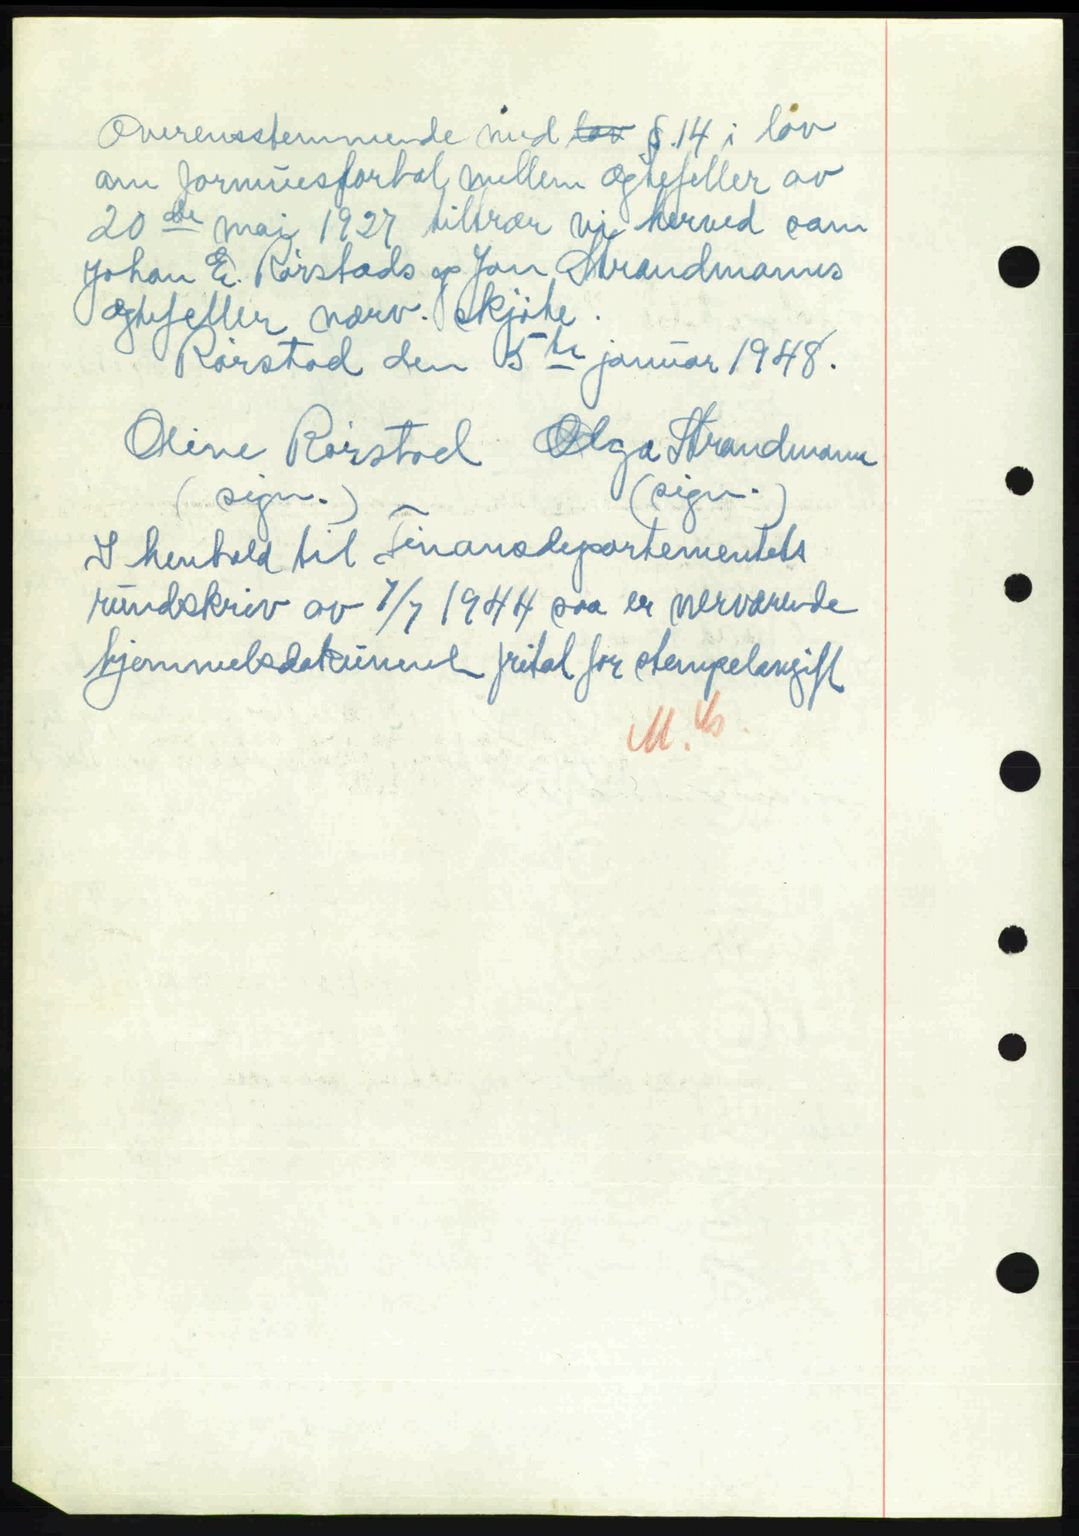 Overensstemmende med lov §.14 i lov
om formuesforhol mellem ægtefeller av
20 de mai 1927 tiltrær vi herved som
Johan E. Rørstads og Jon Strandmanns
ægtefeller nærv. skjøte.
Rørstad den 5te januar 1948.
Oline Rørstad Olga Strandmann
(sign.) (sign.)
I henhold til Finansdepartementets
rundskriv av 7/7 1944 saa er nerværende
hjemmelsdokument fritat for stempelavgift